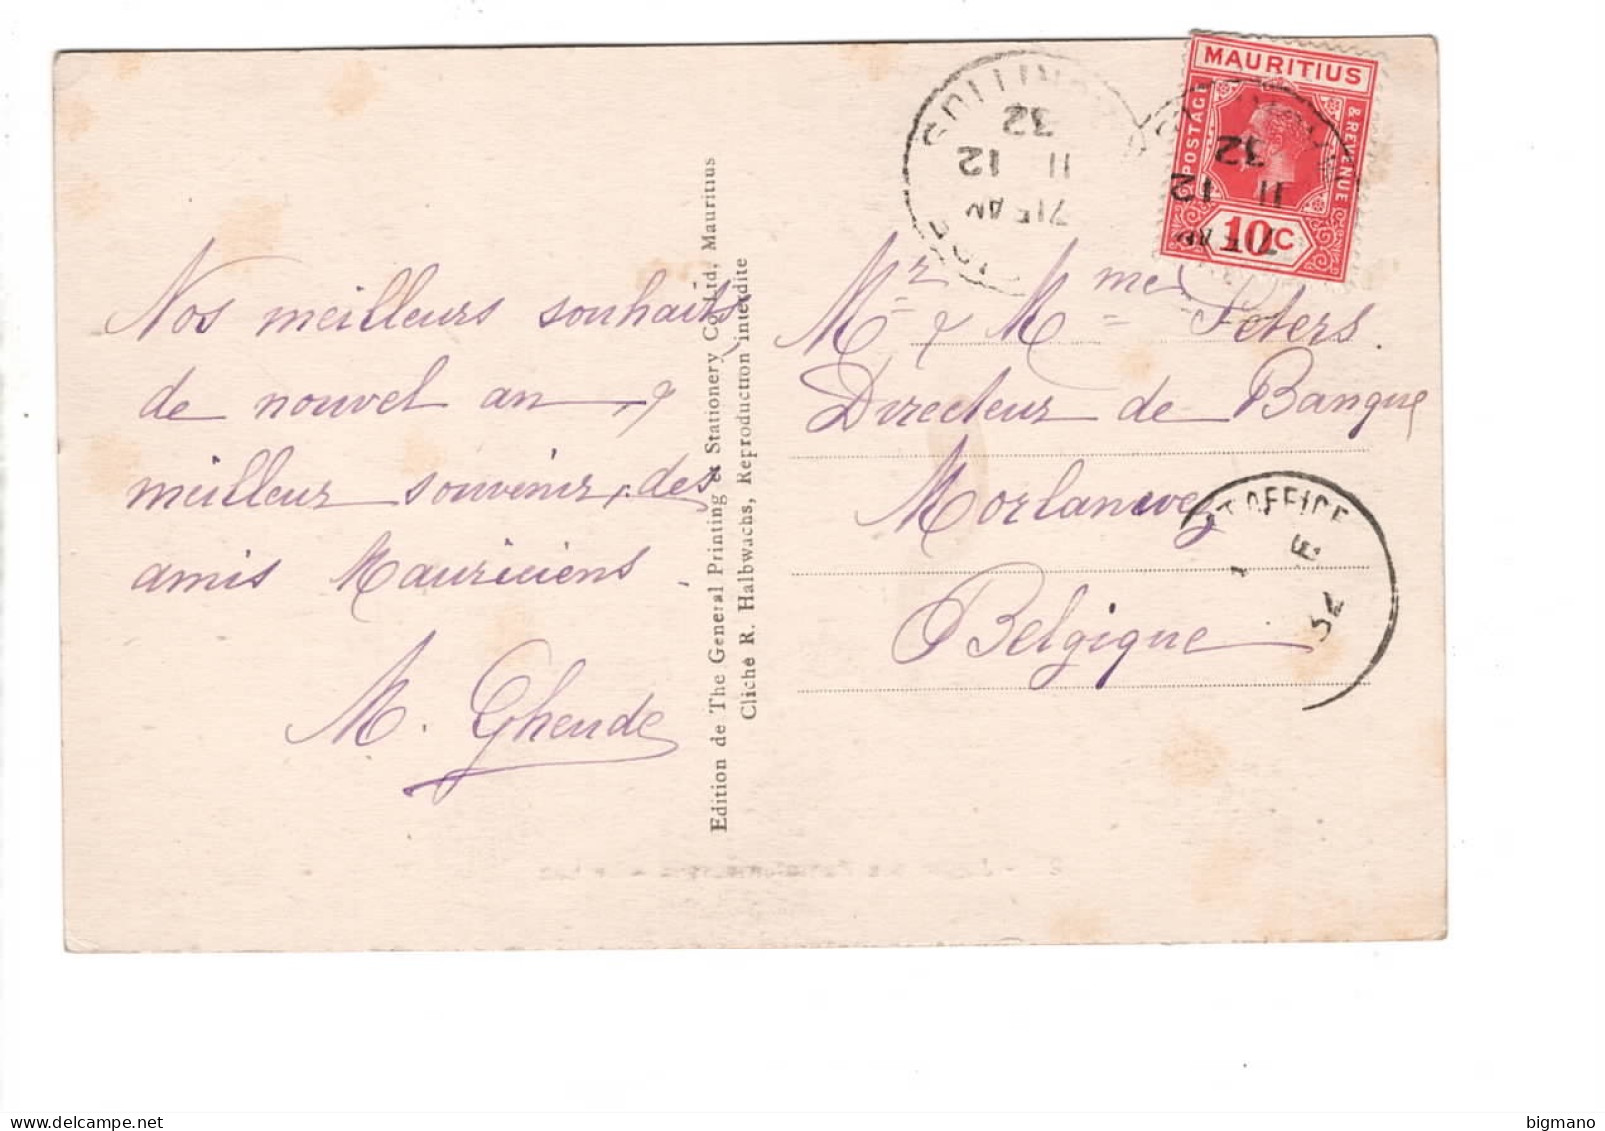 MAURITIUS
POSTAGE
& REVENUE
10C
32
11
12
32
11
12
Nos meilleurs souhaits
de nouvel an &
meilleur souvenir, des
amis Mauriciens.
M. Gheude
Edition de The General Printing & Stationery Co Ltd, Mauritius
Cliché R. Halbwachs, Reproduction interdite
Mr & Mme Peters.
Directeur de Banque
Morlanwez
Belgique
OFFICE
32
bigmano